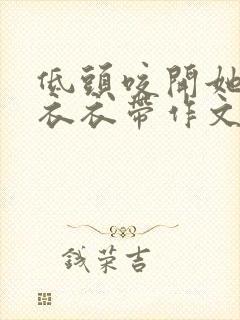 低頭咬開她
衣衣帶作文
钱荣吉